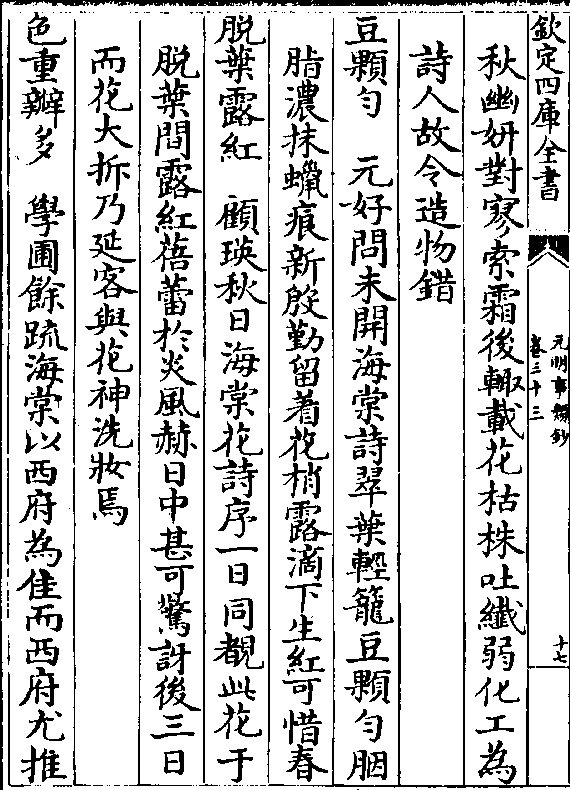 欽定四庫全書
元明事類鈔
卷三十三
十七
秋幽妍對寥索霜後輙載花枯株吐纎弱化工為
詩人故令造物錯
豆顆勻　元好問未開海棠詩翠葉輕籠豆顆勻胭
脂濃抹蠟痕新殷勤留着花梢露滴下生紅可惜春
脱葉露紅　顧瑛秋日海棠花詩序一日同觀此花于
脱葉間露紅蓓蕾於炎風赫日中甚可驚訝後三日
而花大拆乃延客與花神洗妝焉
色重瓣多　學圃餘疏海棠以西府為佳而西府尤推